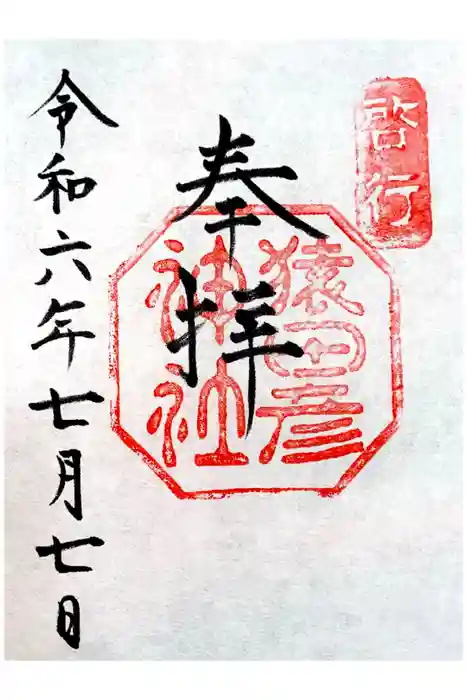 啓行
奉拝
猿田彦
神社
令和六年七月七日